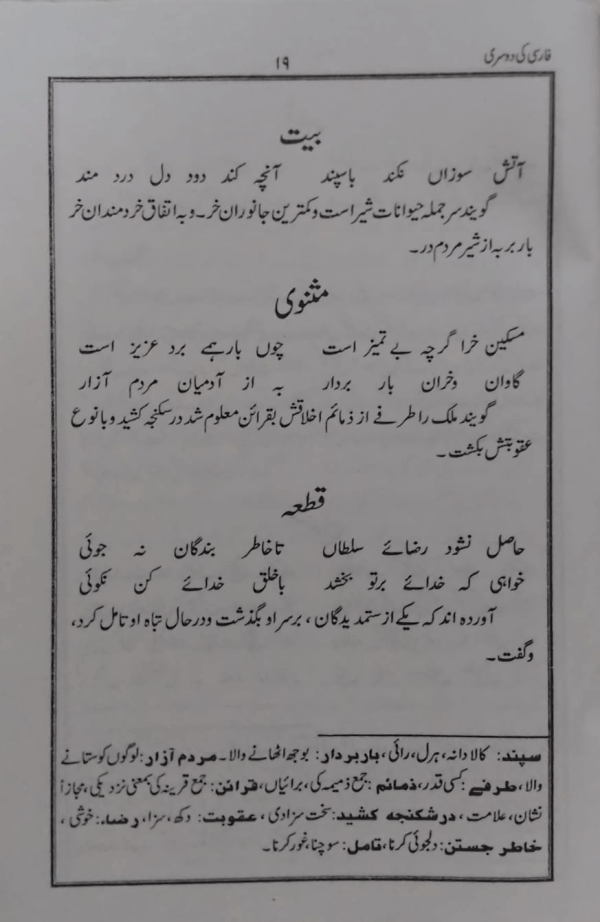 فارسی کی دوسری
۱۹
بیت
آتش سوزاں نکند باسپند آنچہ کند دود دل درد مند
گویند سر جملہ حیوانات شیر است و کمترین جانوران خر۔ وبہ اتفاق خردمندان خر
بار بر بہ از شیر مردم در۔
مثنوی
مسکین خر اگرچہ بے تمیز است چوں بار ہمے برد عزیز است
گاوان وخران بار بردار بہ از آدمیان مردم آزار
گویند ملک را طرفے از ذمائم اخلاقش بقرائن معلوم شد در سکنجہ کشید و بانوع
عقوبتش بکشت۔
قطعہ
حاصل نشود رضائے سلطاں تاخاطر بندگان نہ جوئی
خواہی کہ خدائے برتو بخشد باخلق خدائے کن نکوئی
آوردہ اند کہ یکے از ستمدیدگان، برسر او بگذشت ودرحال تباہ او تامل کرد،
وگفت۔
سپند: کالا دانہ، ہرل، رائی، باربردار: بوجھ اٹھانے والا۔ مردم آزار: لوگوں کو ستانے
والا، طرفے: کسی قدر، ذمائم: جمع ذمیمہ کی، برائیاں، قرائن: جمع قرینہ کی بمعنی نزدیکی، مجازاً
نشان، علامت، درشکنجہ کشید: سخت سزا دی، عقوبت: دکھ، سزا، رضاء: خوشی،
خاطر جستن: دلجوئی کرنا، تامل: سوچنا، غور کرنا۔